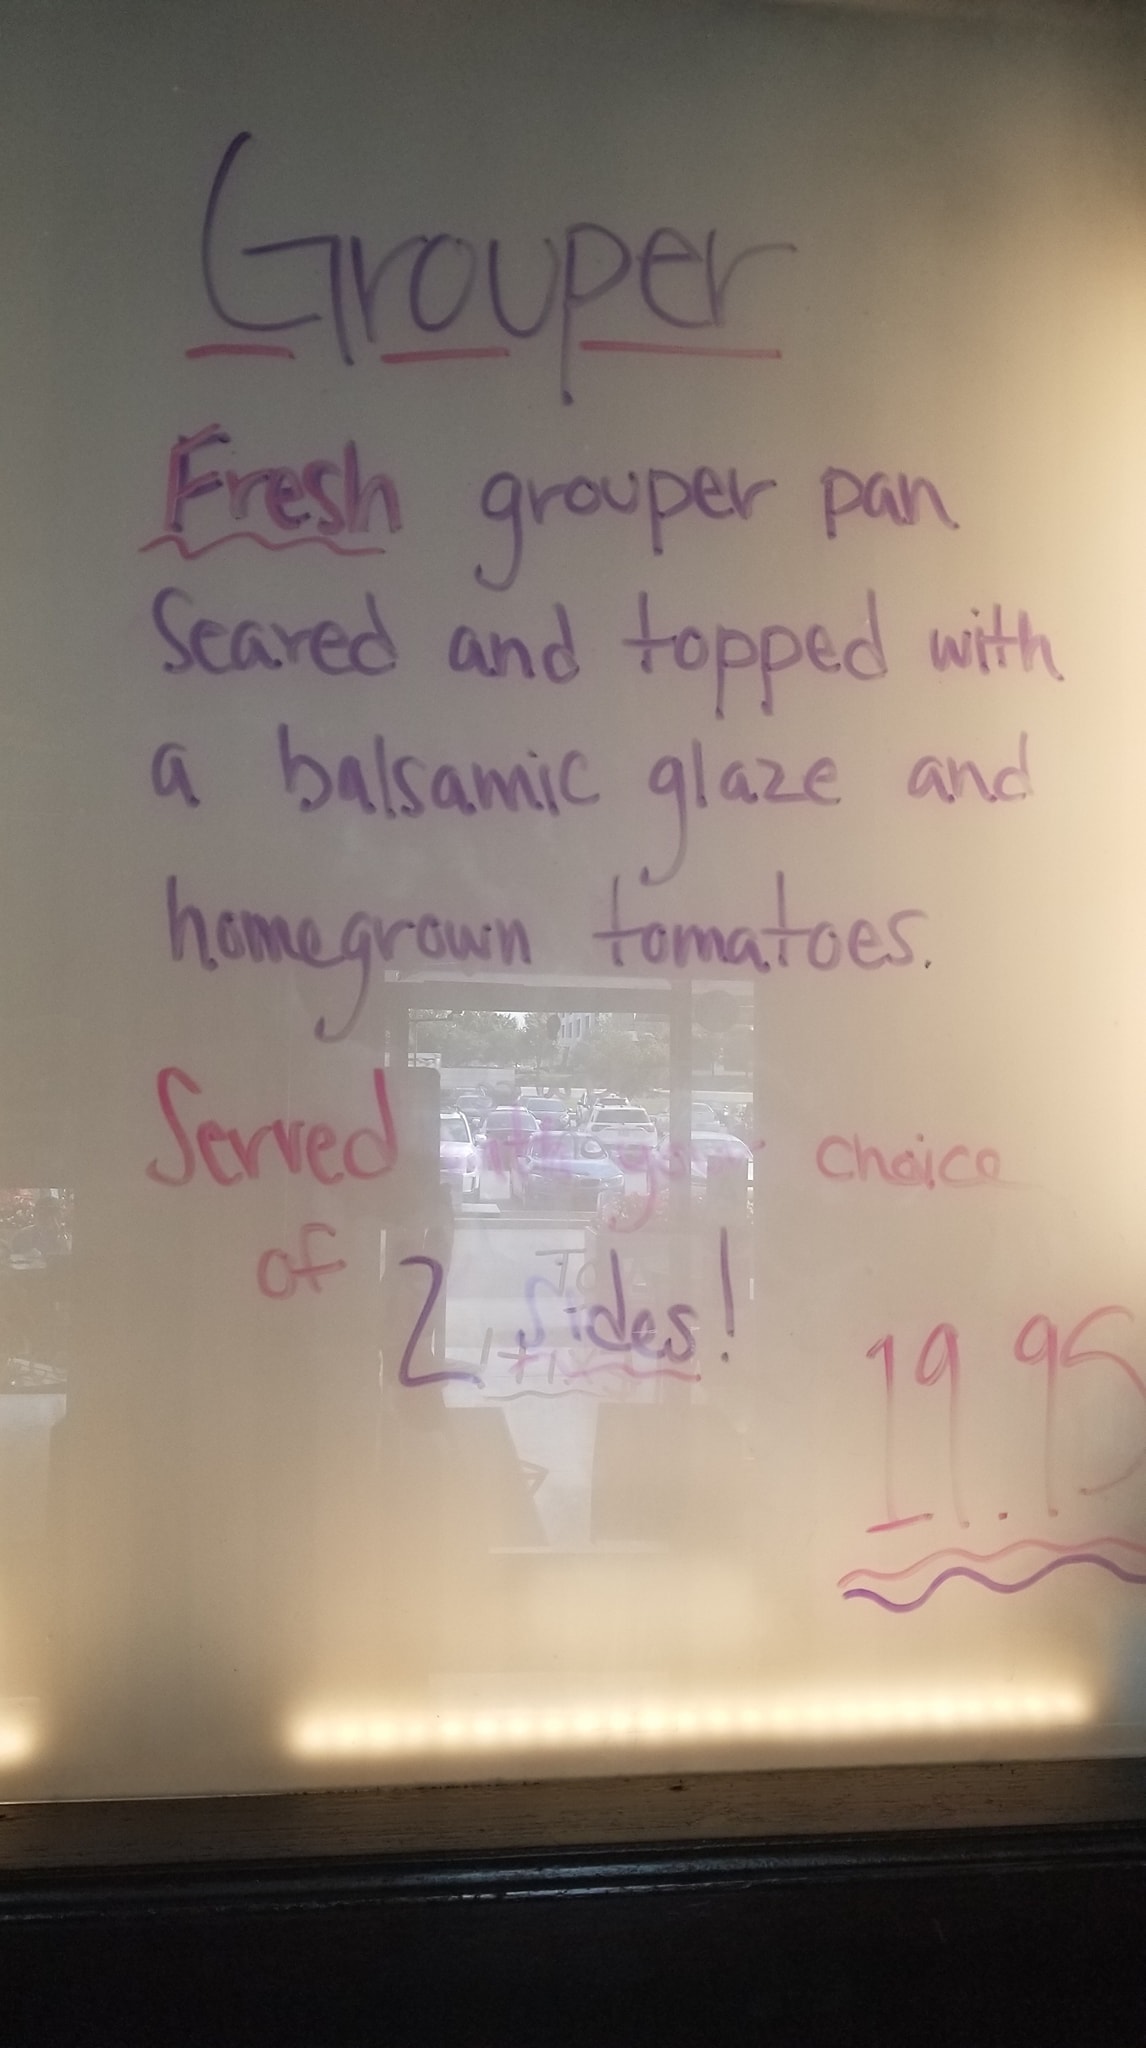 Grouper
Fresh grouper pan
Seared and topped with
a balsamic glaze and
homegrown tomatoes.
Served with your choice
of 2 sides!
19.95